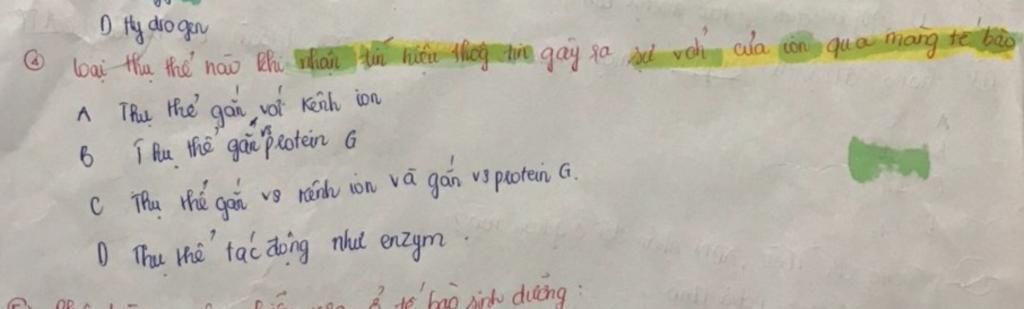 D Hydrogen
④ loại thụ thể nào khi nhận tín hiệu thôg tin gây ra sự vch của ion qua màng tế bào
A Thụ thể gắn với kênh ion
B Thụ thể gắn vs protein G
C Thụ thể gắn vs kênh ion và gắn vs protein G.
D Thụ thể tác động như enzym.
ở tế bào sinh dưỡng: